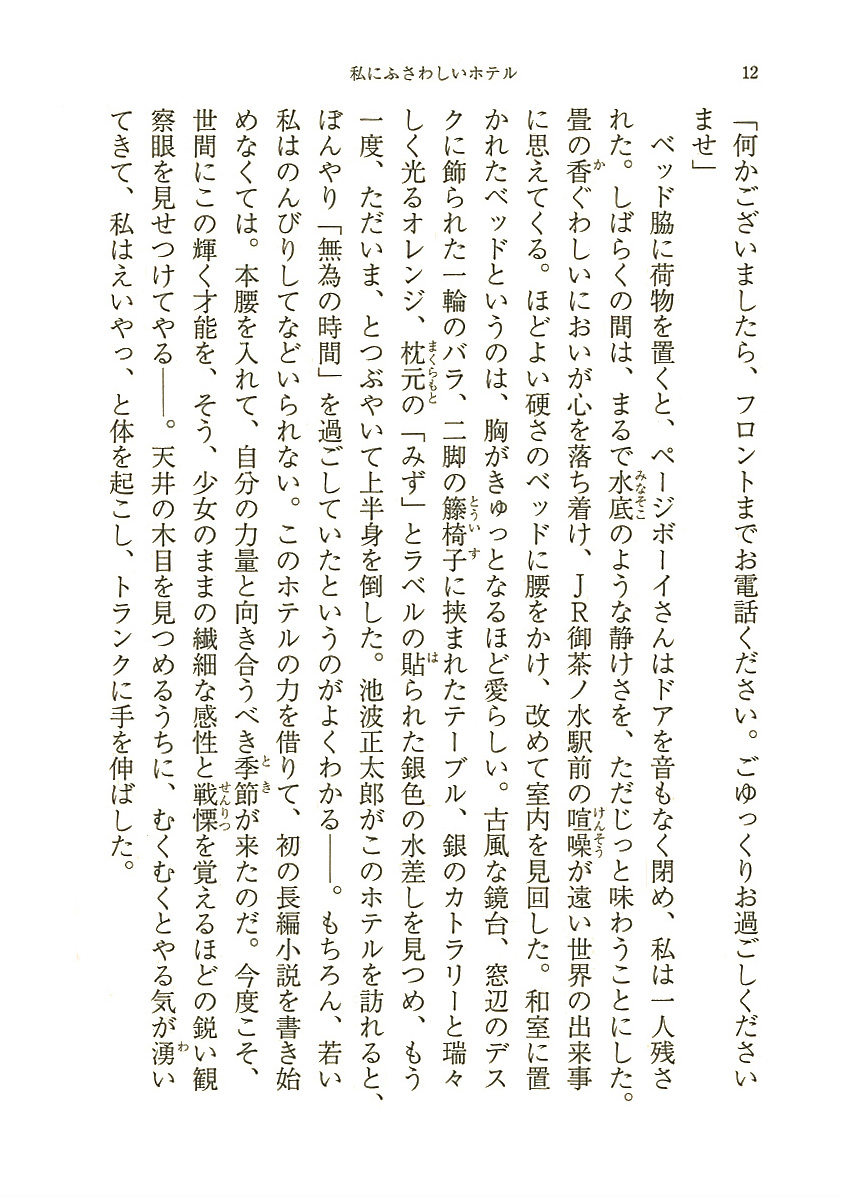 私にふさわしいホテル
12
「何かございましたら、フロントまでお電話ください。ごゆっくりお過ごしください
ませ」
　ベッド脇に荷物を置くと、ページボーイさんはドアを音もなく閉め、私は一人残さ
れた。しばらくの間は、まるで水底のような静けさを、ただじっと味わうことにした。
畳の香ぐわしいにおいが心を落ち着け、ＪＲ御茶ノ水駅前の喧噪が遠い世界の出来事
に思えてくる。ほどよい硬さのベッドに腰をかけ、改めて室内を見回した。和室に置
かれたベッドというのは、胸がきゅっとなるほど愛らしい。古風な鏡台、窓辺のデス
クに飾られた一輪のバラ、二脚の籐椅子に挟まれたテーブル、銀のカトラリーと瑞々
しく光るオレンジ、枕元の「みず」とラベルの貼られた銀色の水差しを見つめ、もう
一度、ただいま、とつぶやいて上半身を倒した。池波正太郎がこのホテルを訪れると、
ぼんやり「無為の時間」を過ごしていたというのがよくわかる――。もちろん、若い
私はのんびりしてなどいられない。このホテルの力を借りて、初の長編小説を書き始
めなくては。本腰を入れて、自分の力量と向き合うべき季節が来たのだ。今度こそ、
世間にこの輝く才能を、そう、少女のままの繊細な感性と戦慄を覚えるほどの鋭い観
察眼を見せつけてやる――。天井の木目を見つめるうちに、むくむくとやる気が湧い
てきて、私はえいやっ、と体を起こし、トランクに手を伸ばした。